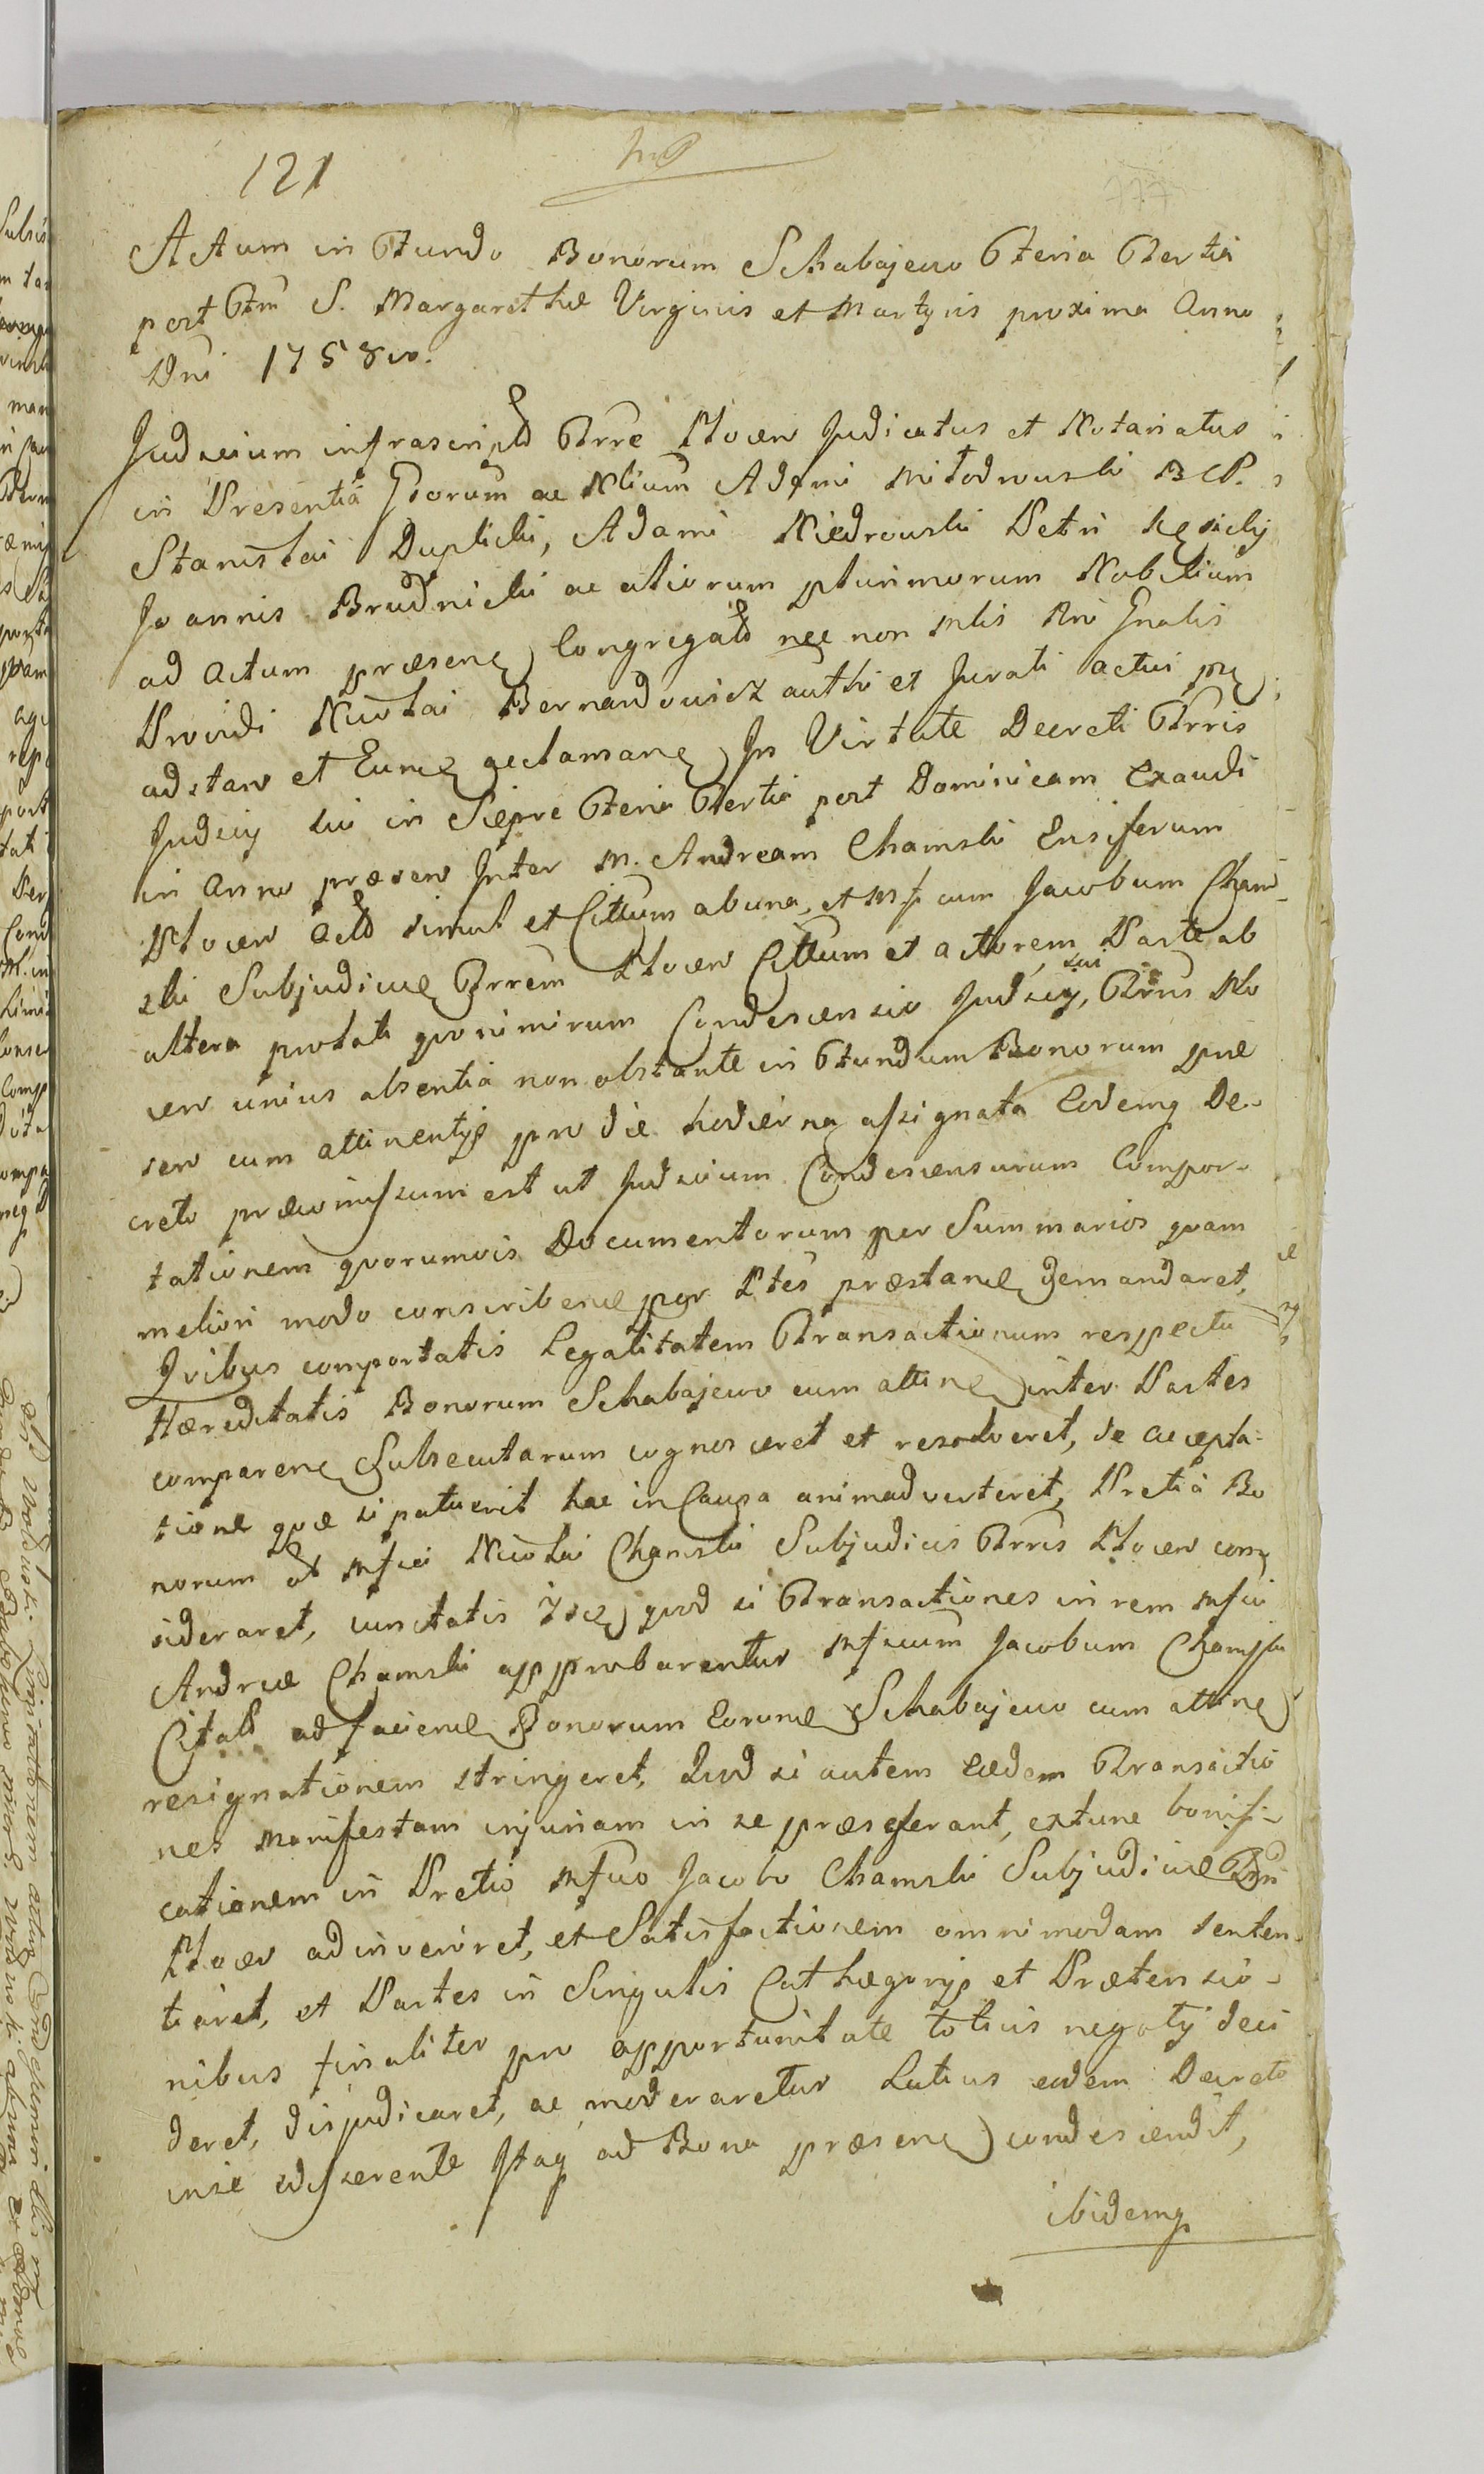 121
777
Actum in Fundo Bonorum Schabajewo Feria Tertia
post Ftm S. Margarethæ Virginis et Martyris proxima Anno
Dni 1758vo.
Judicium infrascript Trre Plocen Judicatus et Notariatus
in Presentiâ Gsorum ac Nlium Adami Młodzowski B C P.
Stanislai Duplicki, Adami Niedrowski Petri
Joannis Brudnicki ac aliorum plurimorum Nobilium
ad Actum præsenę Congregat nec non Mlis Rni Gnalis
Providi Nicolai Bernardowicz authi et Jurati actui pñ
adstan et Eumę aclamanę In Virtute Decreti Trris
Judicij sui in Sierpe Feria Tertia post Dominicam Exaudi
in Anno præsen Inter M. Andream Chamski Ensiferum
Plocen Act simul et Cittum ab una, et Mfcum Jacobum Cham-
ski Subjudicę Trrem Plocen Cittum et actorem Parte ab
altera prolati quo nimirum Condescensio Judicij sui, Trris Plo
cen unius absentia non obstante in Fundum Bonorum præ
sen cum attinentijs pro die hodierna assignata Eodemq De-
creto præcuistum est ut Judicium Condescensurum Compor-
tationem quorumvis Documentorum per Summarios quam
meliori modo conscribenę per Ptes præstanę demandaret,
Qvibus comportatis Legalitatem Transactionum respectu
Hæreditatis Bonorum Schabajewo cum attinę inter Partes
comparenę Subsecutarum cognosceret et resolveret, de accepta-
tione quæ si patuerit hac in Causa animadverteret, Pretia Bo
norum ot Mfici Nicolai Chamski Subjudicis Trris Plocen con
sideraret, cunctatis quod si Transactiones in rem Mfici
Andreæ Chamski approbarentur Mficum Jacobum Chamski
Citat ad facienę Bonorum Eorumę Schabajewo cum attinę
resignationem stringeret, Quod si autem Eædem Transactio
nes Manifestam injuriam in se præseferant, extunc bonifi-
cationem in Pretio Mfico Jacobo Chamski Subjudicę Trri
Plocen adinveniret, et Satisfactionem omnimodam senten-
tiaret, et Partes in Singulis Cathægorijs et Prætensio-
nibus finaliter pro opportunitate totius negotij deci
deret, disjudicaret, ac moderaretur Latius eodem Decreto
in se edisserente Itaq ad Bona præsenę condescendit,
ibidemq